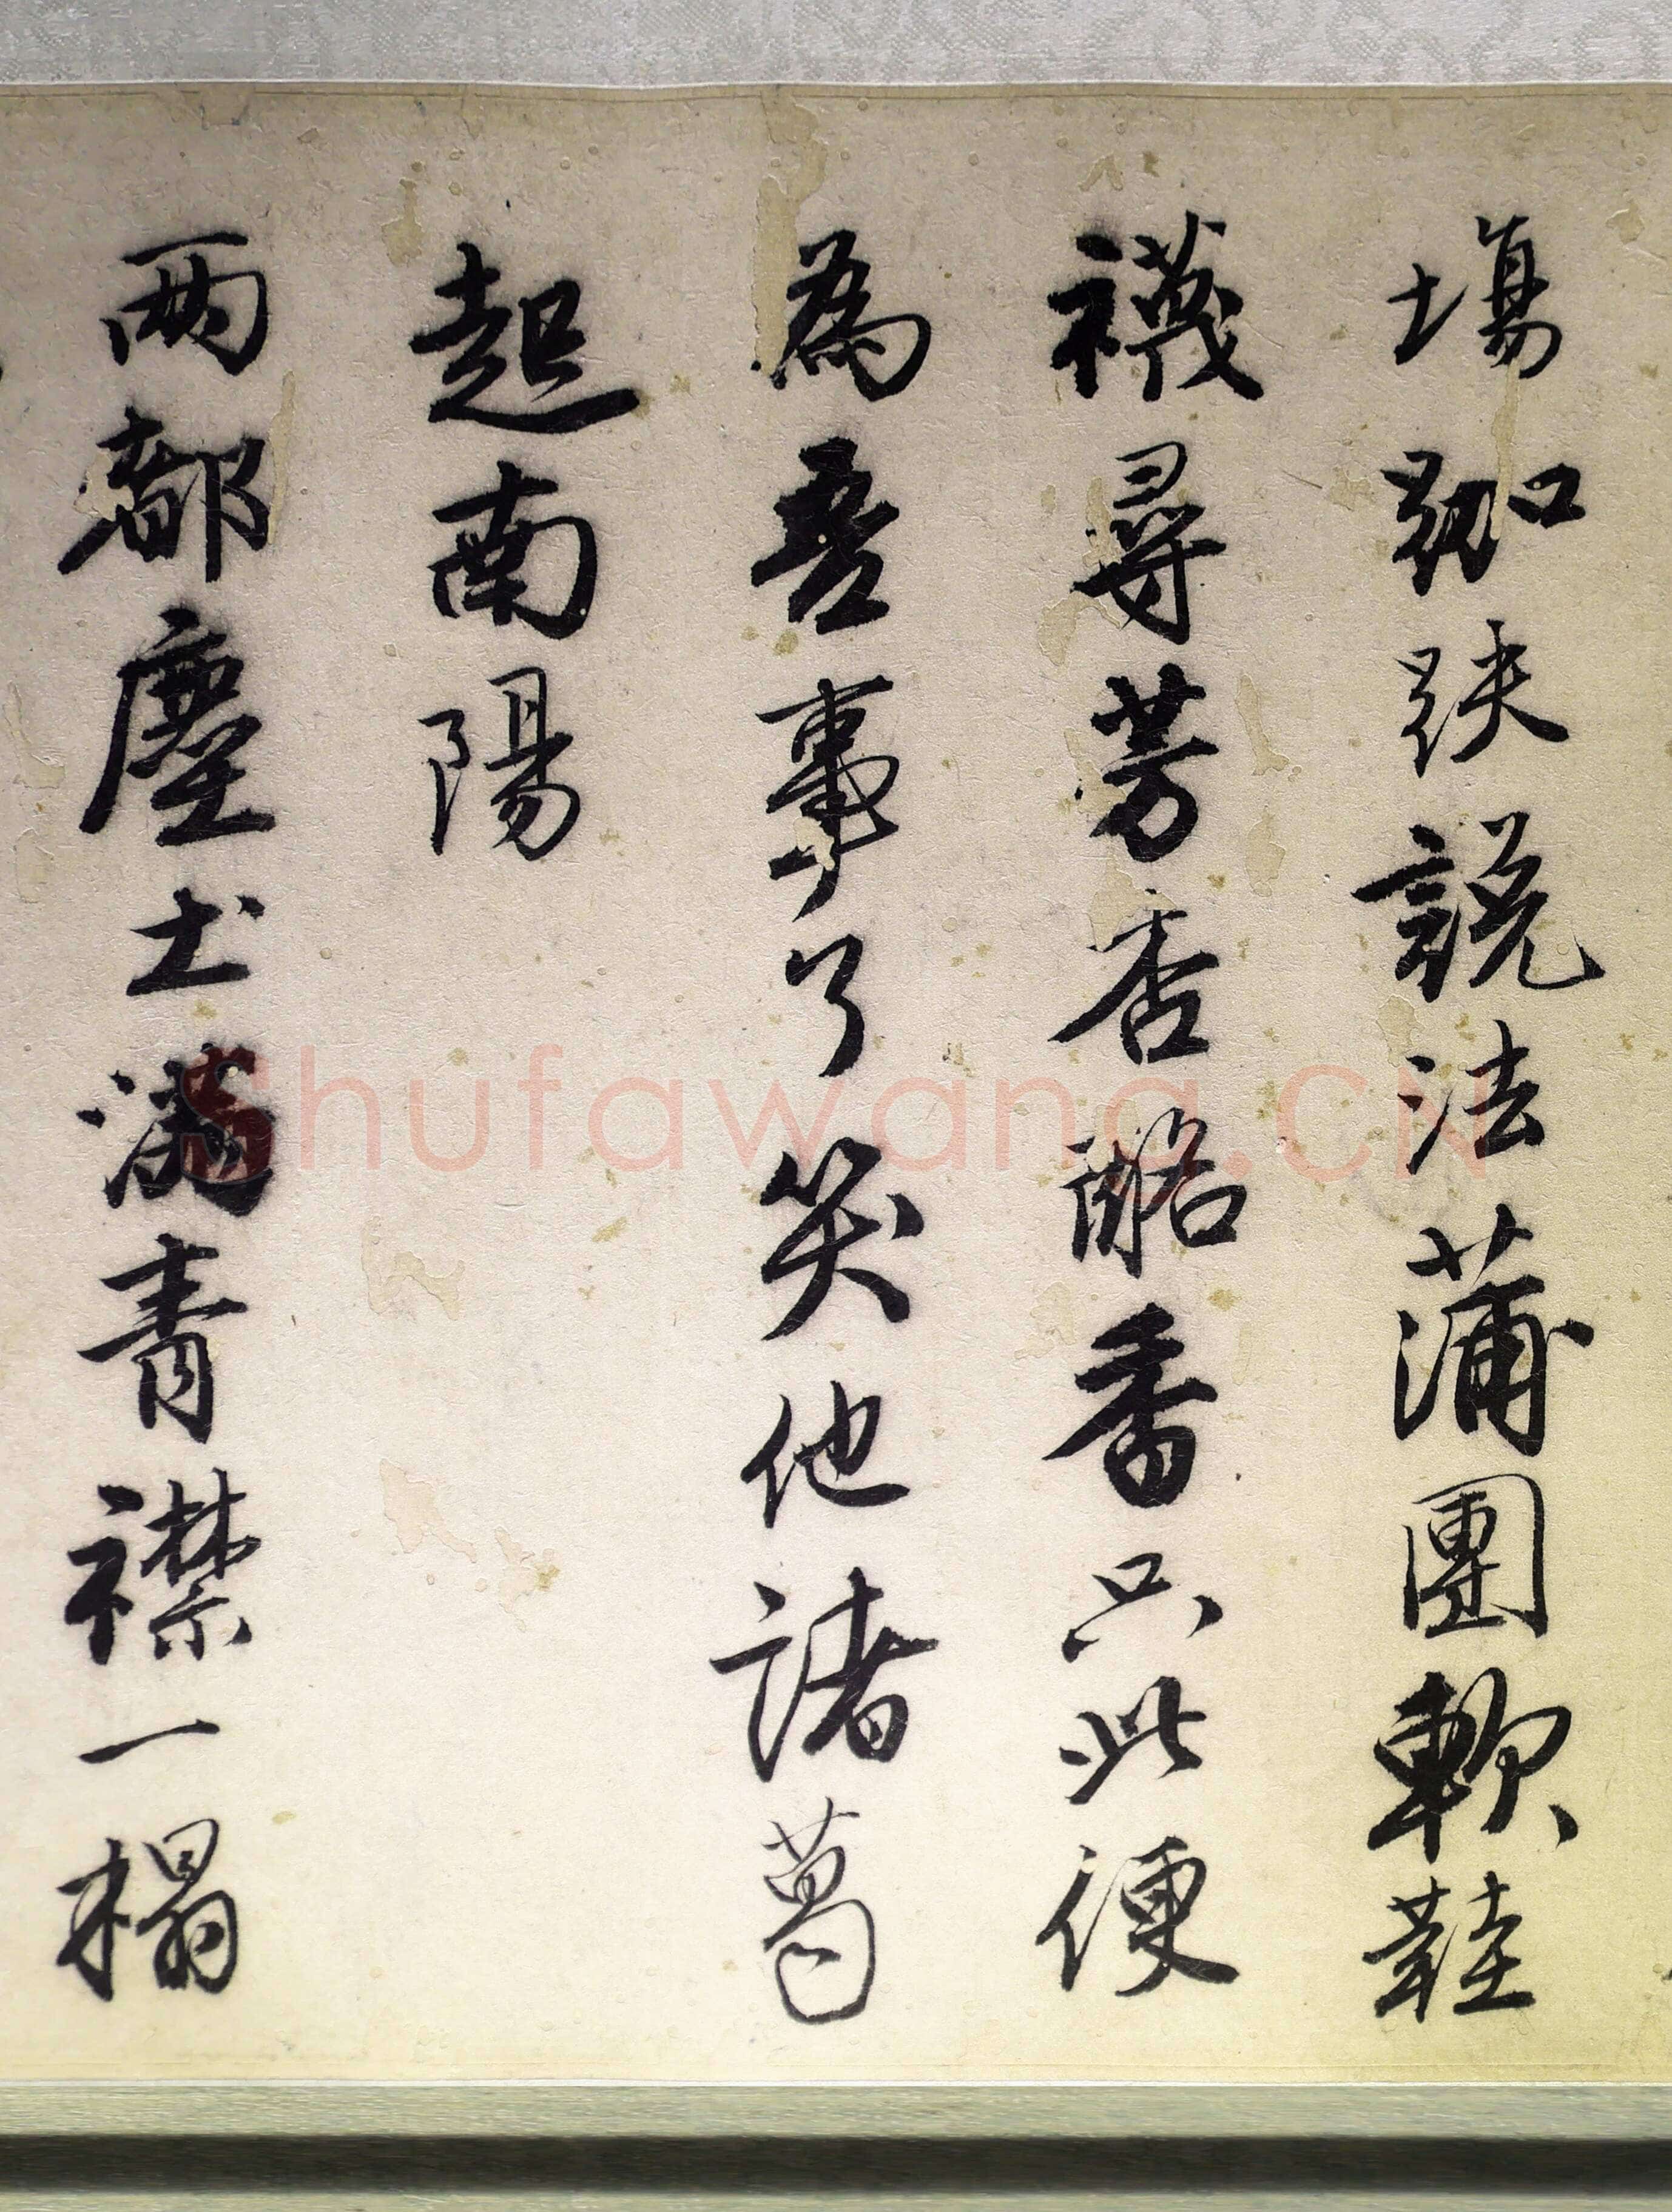 場跏趺說法蒲團軟鞋
襪尋芳杏酪香只此便
為吾事了笑他諸葛
起南陽
兩都塵土滿青襟一榻
Shufawang.CN